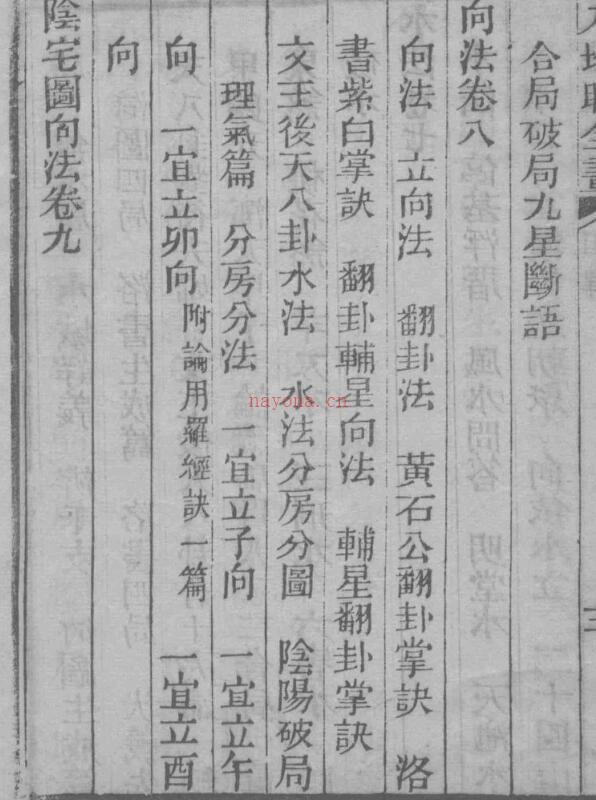 合局破局九星斷語
向法卷八
向法　立向法　翻卦法　黃石公翻卦掌訣　洛
書紫白掌訣　翻卦輔星向法　輔星翻卦掌訣
文王後天八卦水法　水法分房分圖　陰陽破局
理氣篇　分房分法　一宜立子向　一宜立午
向　一宜立卯向　附論用羅經訣一篇　一宜立酉
向
陰宅圖向法卷九
nayona.cn